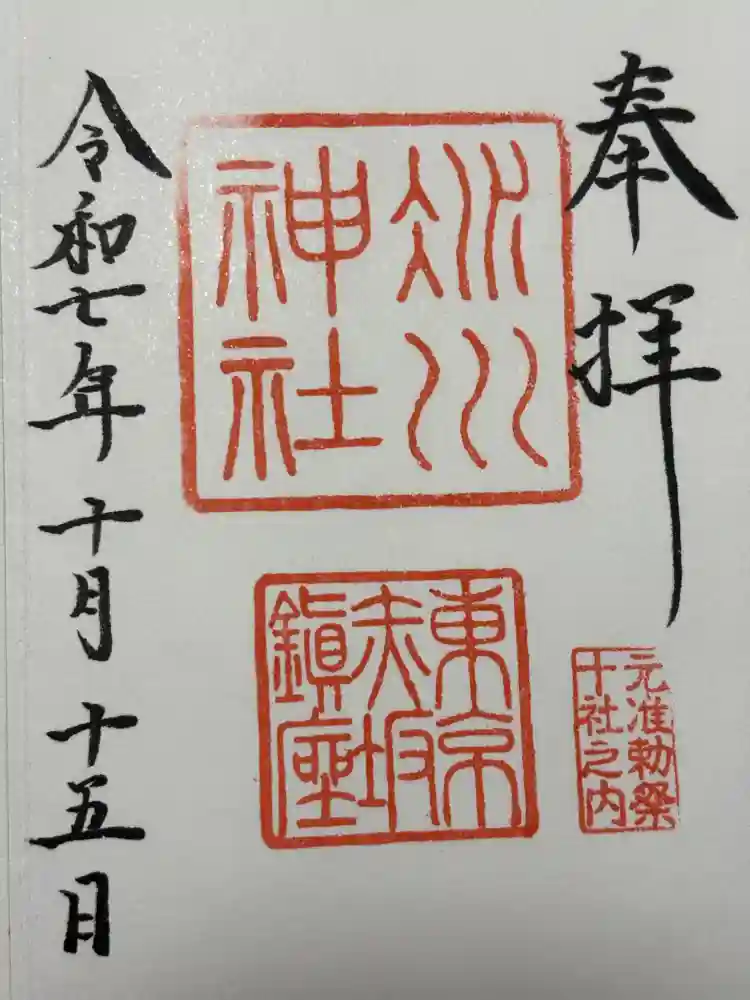 奉拝
氷川
神社
東京
赤坂
鎮座
元准勅祭
十社之内
令和七年十月十五日